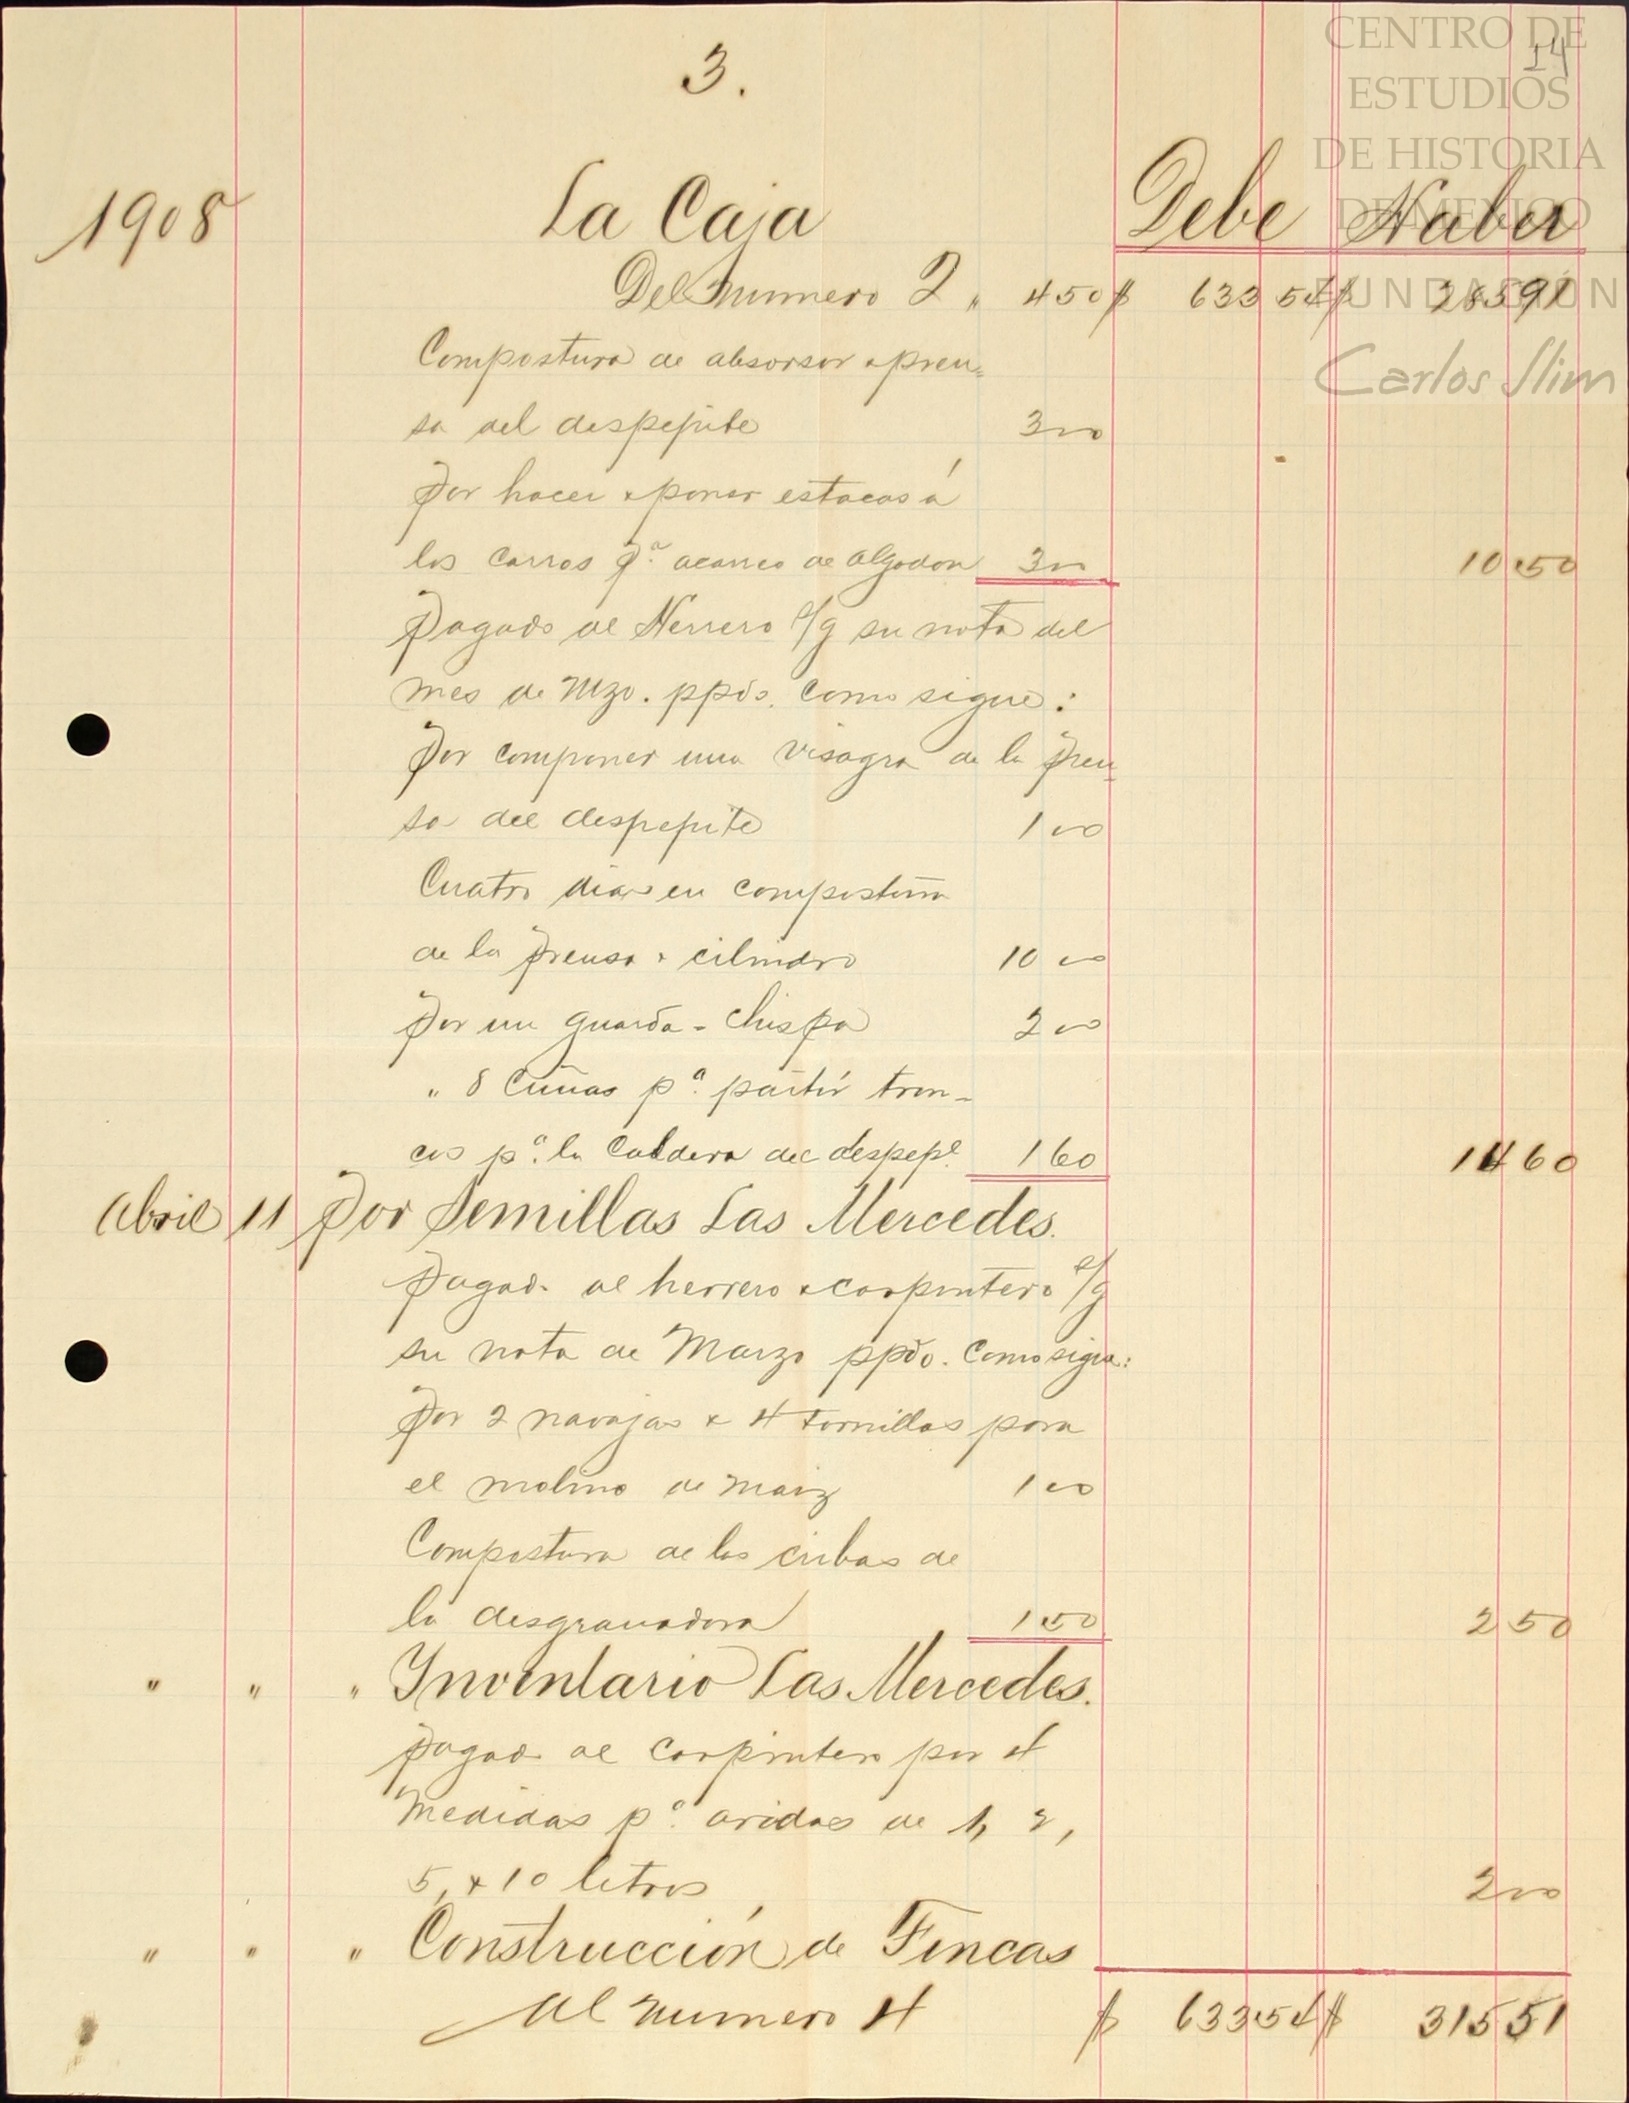 CENTRO DE
ESTUDIOS
DE HISTORIA
DE MEXICO
FUNDACIÓN
Carlos Slim
14
3.
1908 La Caja Debe Haber
Del Numero 2 " 450 $ 633 54 $ 283 91
Compostura de absorsor & pren=
sa del despepite 3 00
Por hacer & poner estacas á
los carros pª acarreo de algodon 3 00 10 50
Pagado al Herrero s/g su nota del
mes de Mzo. ppdo. como sigue:
Por componer una visagra de la Pren=
sa del despepite 1 00
Cuatro dias en compostura
de la prensa & cilindro 10 00
Por un guarda-chispa 2 00
" 8 Cuñas pª partir tron-
cos pª la Caldera del despepe 1 60 14 60
Abril 11 Por Semillas Las Mercedes.
Pagado al herrero & carpintero s/g
su nota de Marzo ppdo. Como sigue:
Por 2 navajas & 4 tornillos para
el molino de maiz 1 00
Compostura de las cribas de
la desgranadora 1 50 2 50
" " " Inventario Las Mercedes.
Pagado al Carpintero por 4
Medidas pª aridos de 1, 2,
5, & 10 litros 2 00
" " " Construcción de Fincas
Al numero 4 $ 633 54 $ 315 51